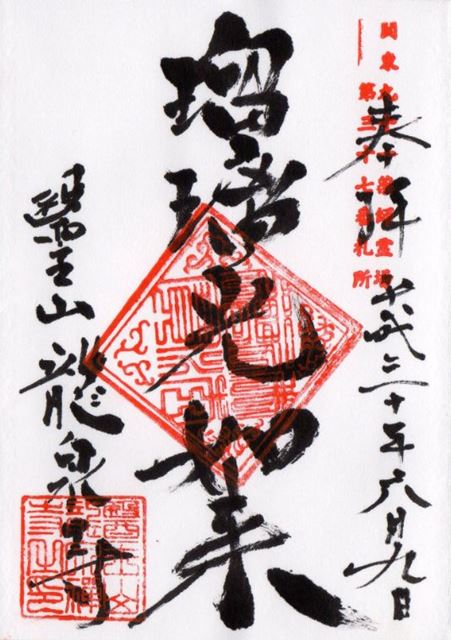 関東九十一薬師霊場
第三十七番札所
奉拝
平成三十年六月九日
瑠璃光如来
醫王山
龍泉寺